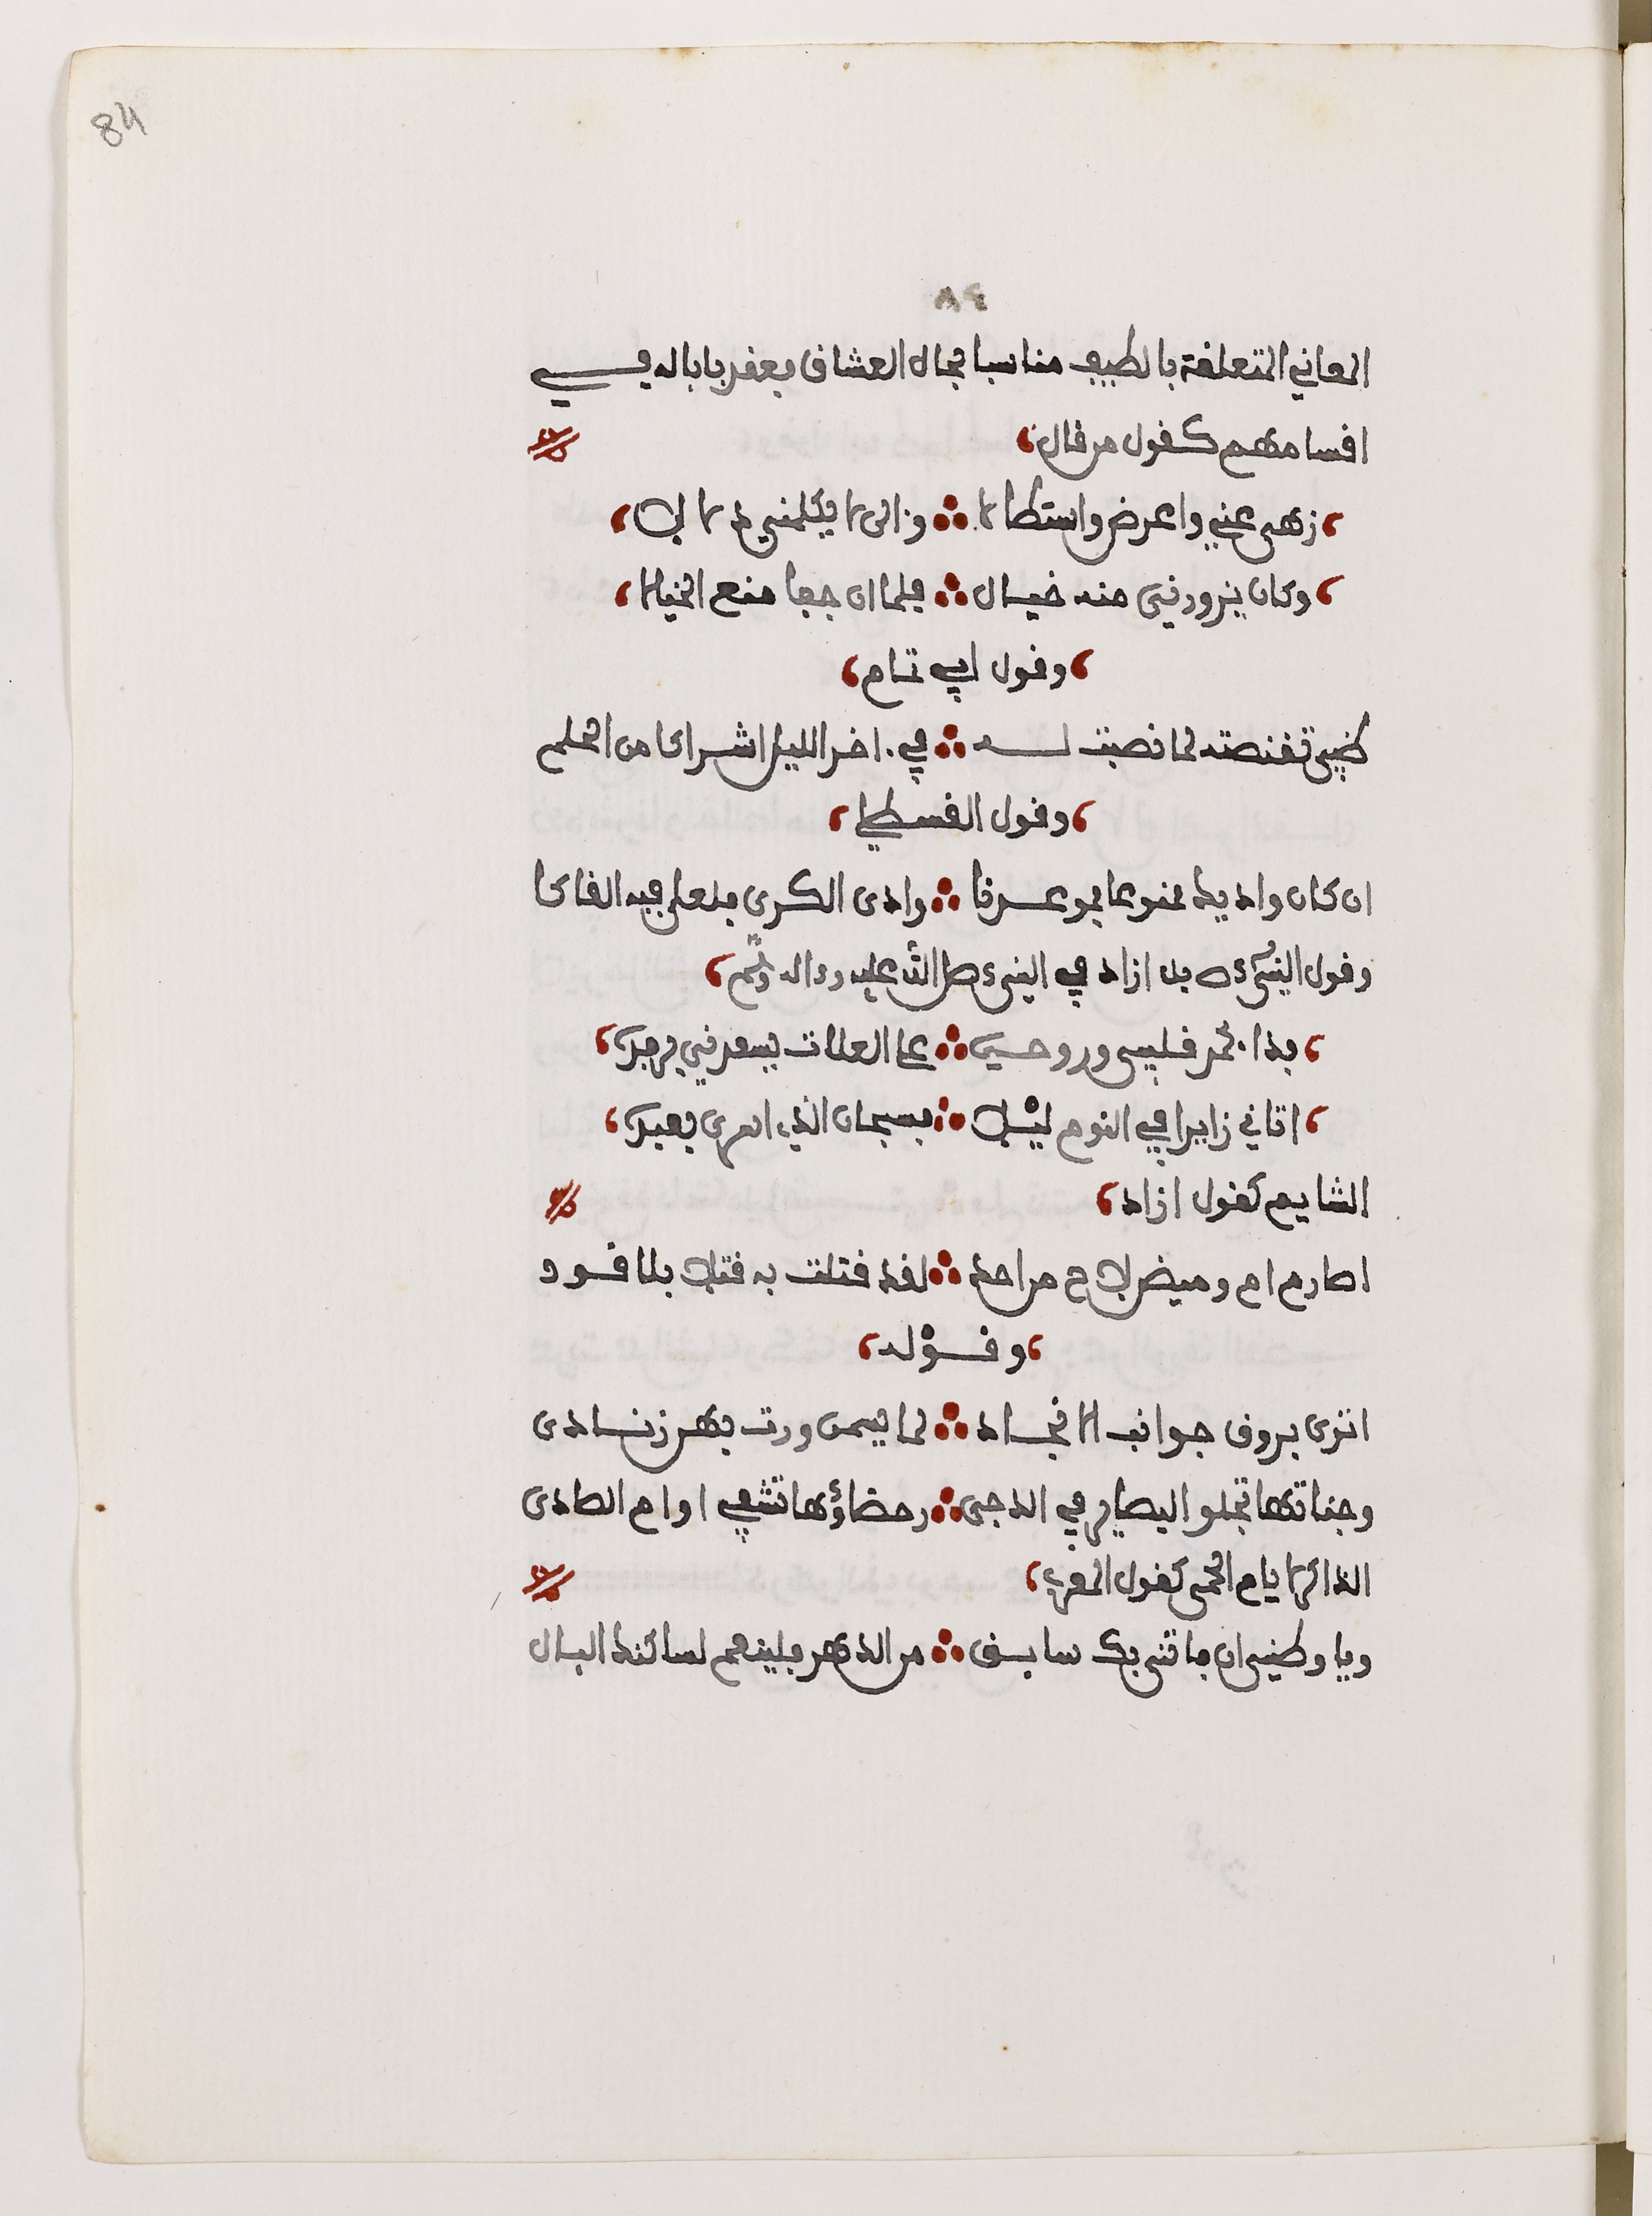 84
٨٤
المعاني المتعلقة بالطيف مناسبا بحال العشاق فعقد بابا له في
اقسامهم كقول من قال،
، زهى عني واعرض واستطالا ∴ والى لا يكلمني دلالا،
، وكان يزورني منه خيال ∴ فلما ان جفا منع الخيالا،
، وقول ابي تمام،
ظبي تقنصته لما نصبت له ∴ في اخر الليل اشراكا من الحلم
، وقول القسطلي،
ان كان واديك ممنوعا فموعدنا ∴ وادى الكرى فلعلي فيه القاكا
وقول ازاد في النبي صلى الله عليه وءاله وسلم،
، فدا لمحمد قلبي وروحي ∴ على العلات يسعدني برفد،
، اتاني زايرا في النوم ليلا ∴ فسبحان الذي اسرى بعبد،
الشايم كقول ازاد،
اصارم ام وميض لاح من احد ∴ لقد قتلت به قتلا بلا قود
، وقوله،
اترى بروق جوانب الانجاد ∴ لما يهمن ورت بهن زنادى
وجناتها تجلو البصاير في الدجى ∴ رمضاؤها تشفي اوام الصادى
الذاكر لايام الحمى كقول المعري،
ويا وطني ان فاتني بك سابق ∴ من الدهر فلينعم لساكنك البال